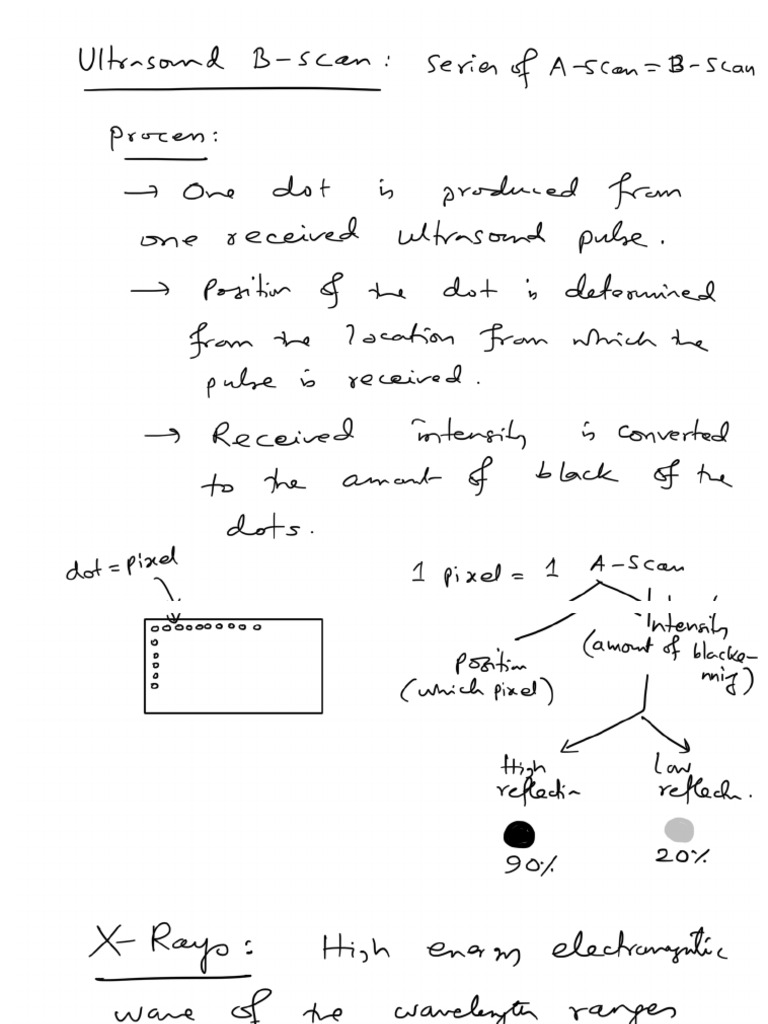 Ultrasound B-scan: Series of A-scan = B-scan
Process:
→ One dot is produced from
one received ultrasound pulse.
→ Position of the dot is determined
from the location from which the
pulse is received.
→ Received intensity is converted
to the amount of black of the
dots.
dot = pixel
1 pixel = 1 A-scan
Position
(which pixel)
Intensity
(amount of blacke-
ning)
High
reflection
90%
Low
reflection.
20%
X-Rays: High energy electromagnetic
wave of the wavelength ranges